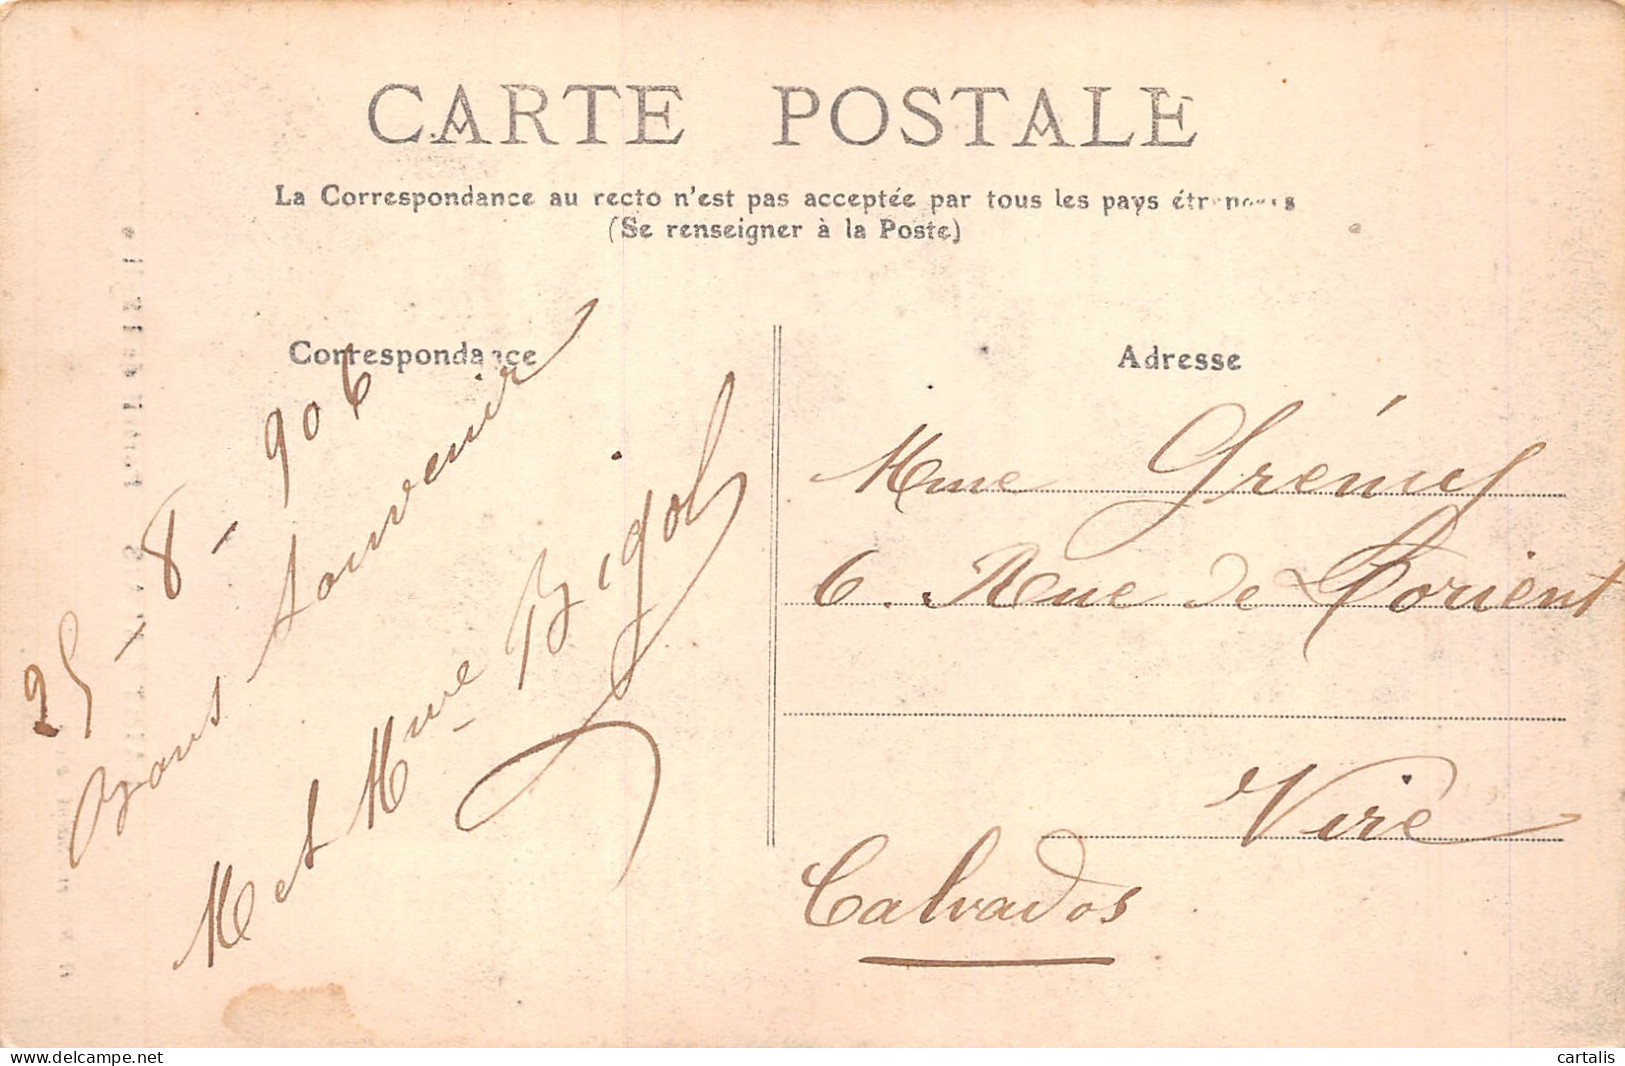 CARTE POSTALE
La Correspondance au recto n'est pas acceptée par tous les pays étrangers
(Se renseigner à la Poste)
Correspondance
25 - 8 - 906
Bons souvenir
M et Mme Bigot
Adresse
Mme Grémy
6. Rue de Lorient
Vire
Calvados
delcampe.net
cartalis